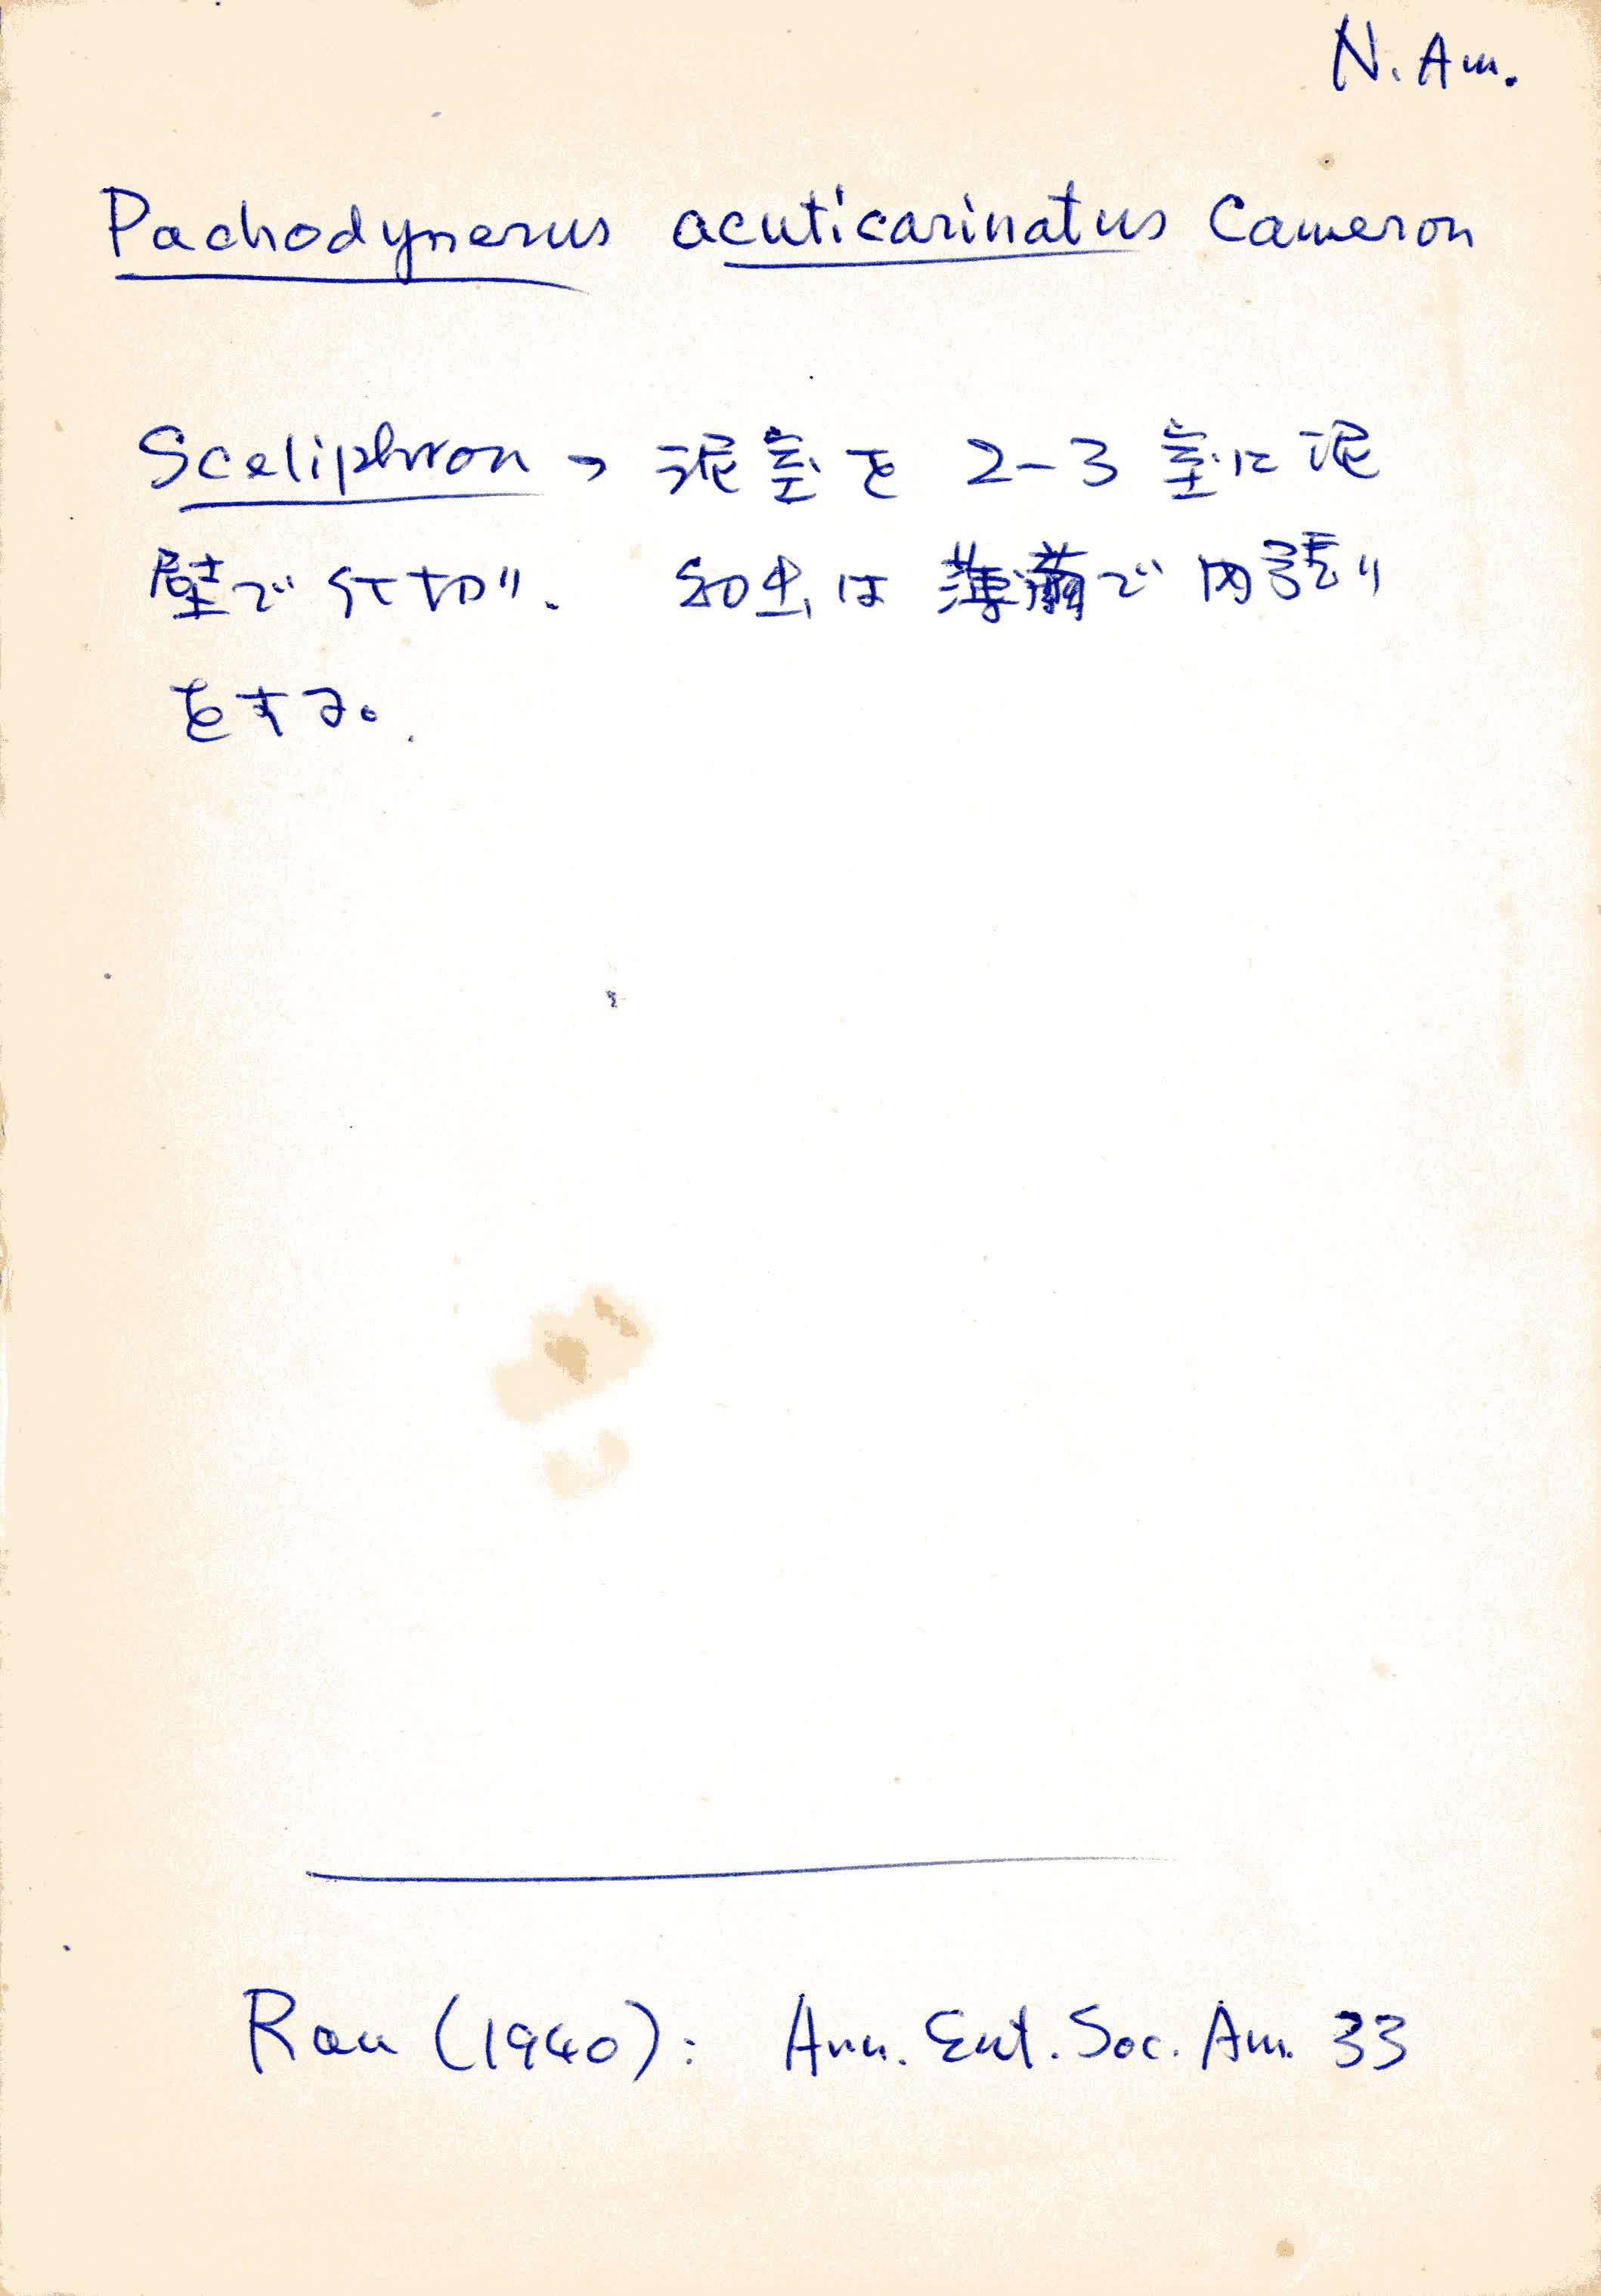 N. Am.
Pachodynerus acuticarinatus Cameron
Sceliphron の 泥室を 2-3 室に泥
壁で仕切り. 幼虫は薄繭で内張り
をする。
Rau (1940): Ann. Ent. Soc. Am. 33